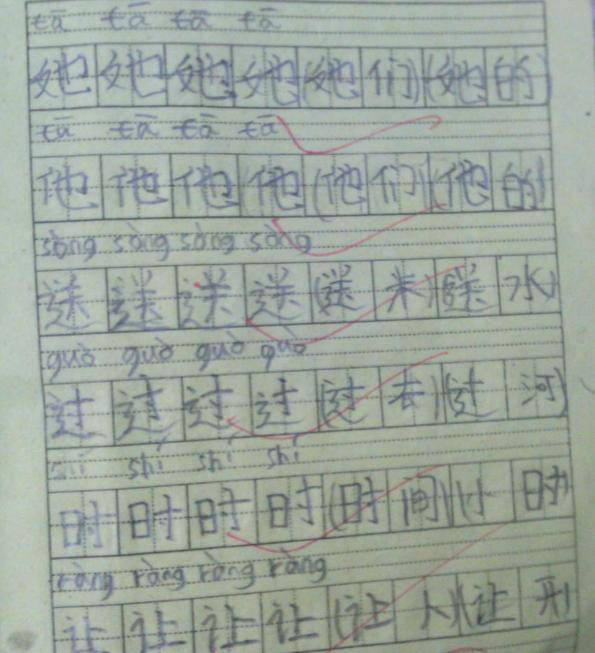 tā tā tā tā
她 她 她 她 (她 们) (她 的)
tā tā tā tā
他 他 他 他 (他 们) (他 的)
sòng sòng sòng sòng
送 送 送 送 (送 米) (送 水)
guò guò guò guò
过 过 过 过 (过 去) (过 河)
shí shí shí
时 时 时 时 (时 间) (小 时)
ràng ràng ràng ràng
让 让 让 让 (让 人) (让 开)